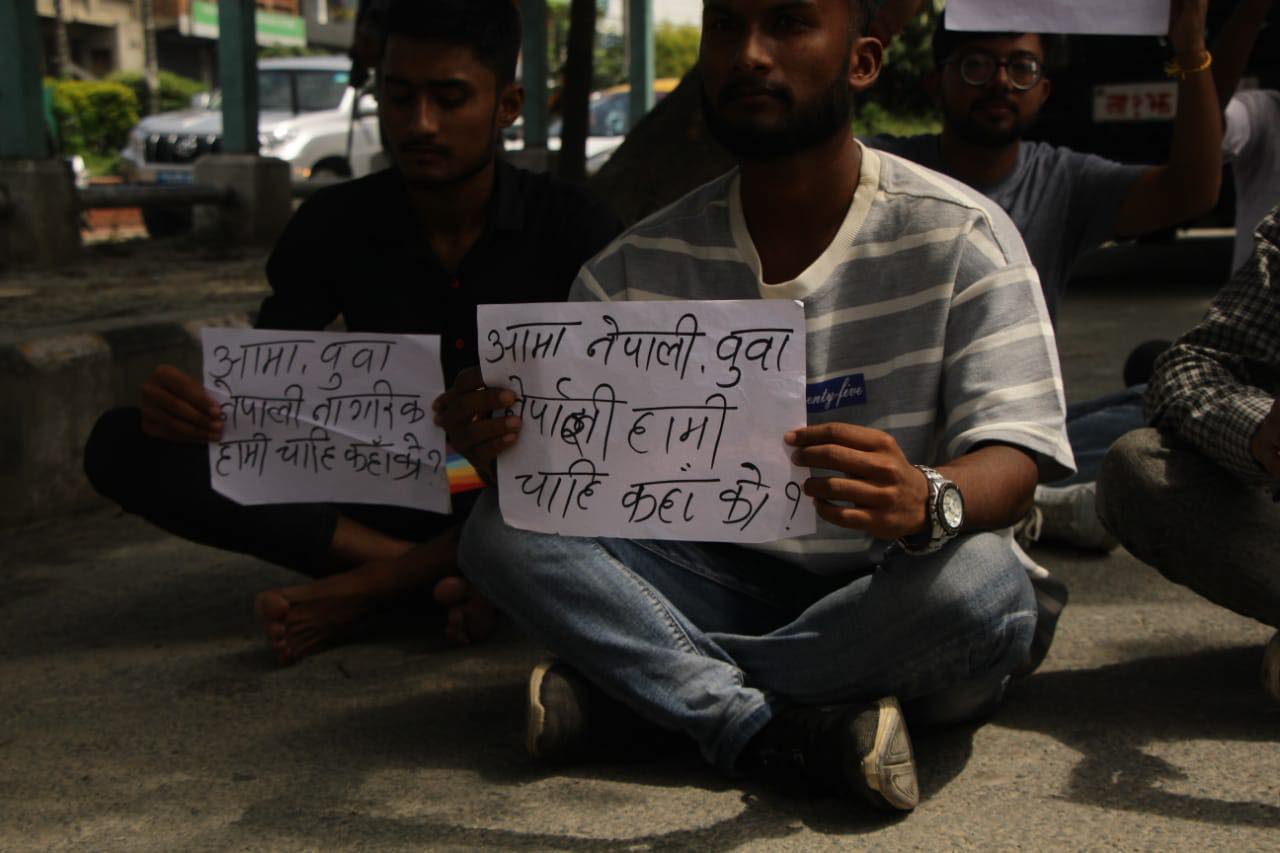 आमा. वुवा
नेपाली नागरिक
हामी चाहि कहाँको?
आमा नेपाली. वुवा
नेपाली हामी
चाहि कहाँ को ?
enty-five